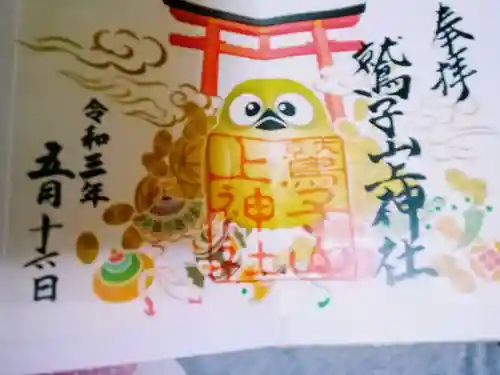 奉拝
鷲子山上神社
鷲子山
上神社
令和三年
五月十六日